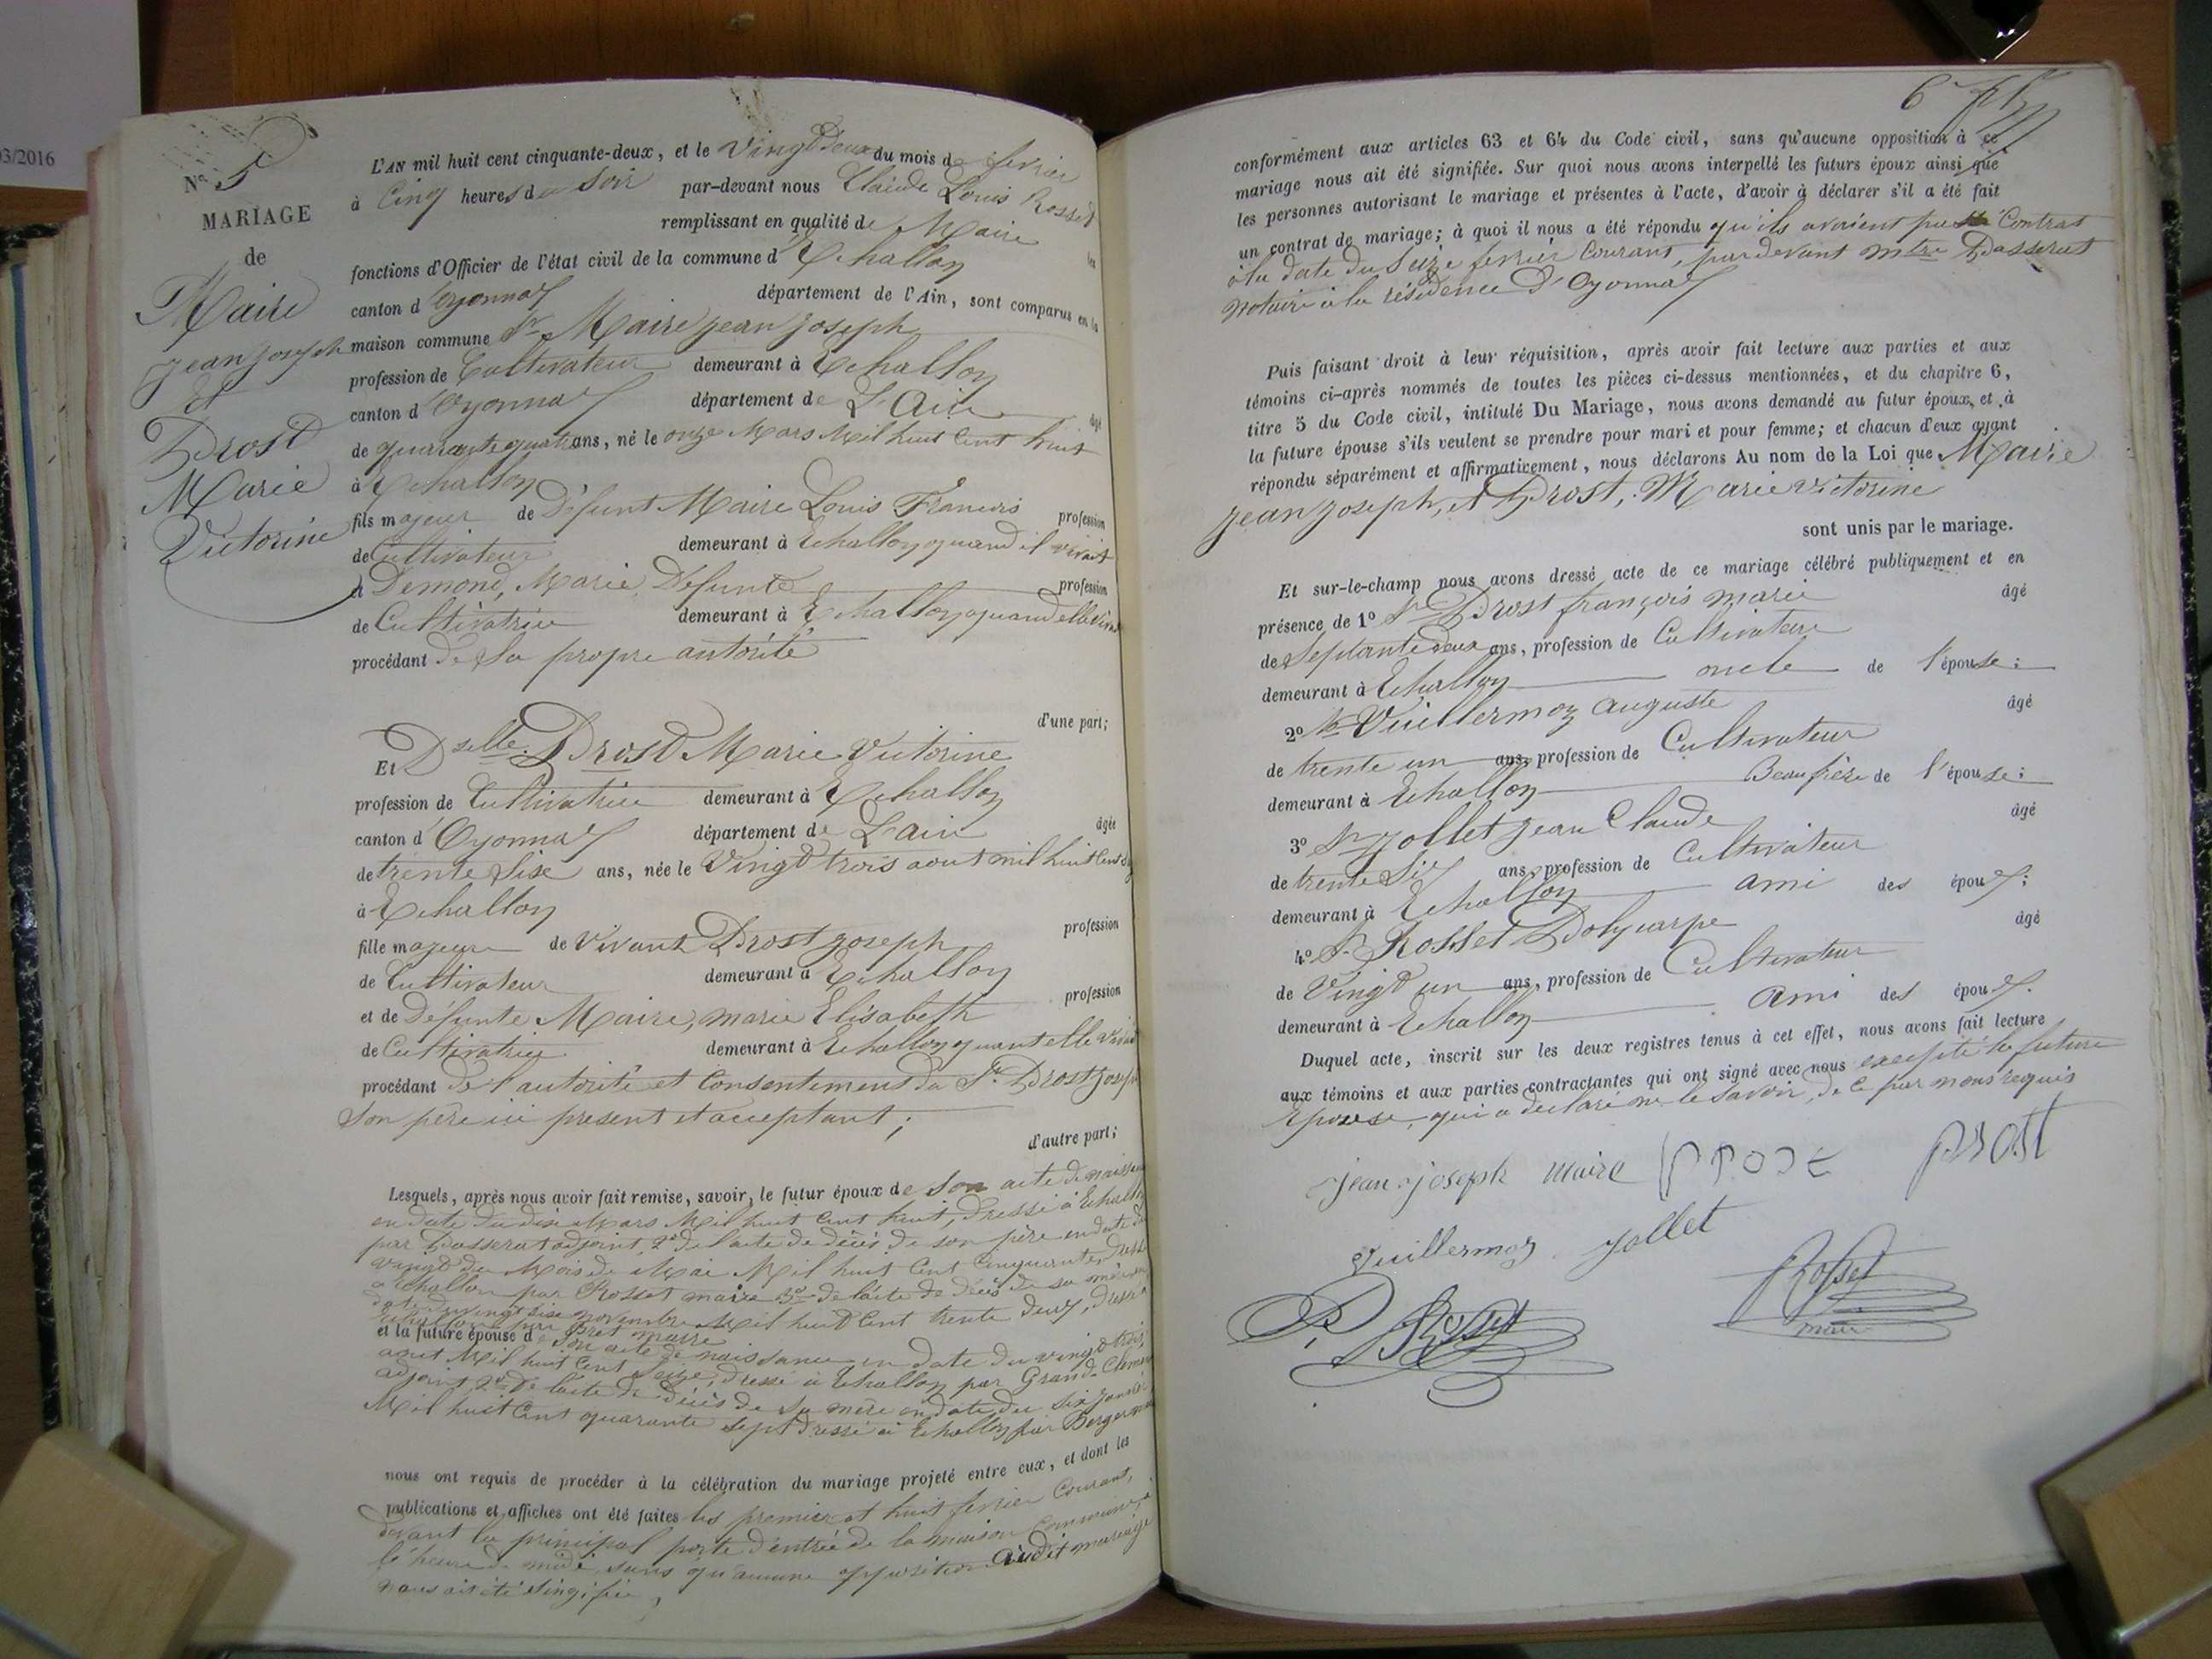 03/2016
N.° 5
MARIAGE
de
Maire
jean joseph
et
Prost
Marie
Victorine
L'AN mil huit cent cinquante-deux, et le Vingt deux du mois de fevrier
à Cinq heures du Soir par-devant nous Claude Louis Rosset
remplissant en qualité de Maire les
fonctions d'Officier de l'état civil de la commune d'Echallon
canton d'oyonnax département de l'Ain, sont comparus en la
maison commune Sr Maire jean joseph
profession de Cultivateur demeurant à Echallon
canton d'Oyonnax département de L'Ain âgé
de quarante quatre ans, né le onze Mars Mil huit Cent huit
à Echallon
fils majeur de Défunt Maire Louis Francois profession
de Cultivateur demeurant à Echallon quand il vivait
et Demond, Marie, Défunte profession
de Cultivatrice demeurant à Echallon quand elle
procédant de Sa propre autorité
d'une part;
Et Dselle Prost Marie Victorine
profession de Cultivatrice demeurant à Echallon
canton d'Oyonnax département de L'ain âgée
de trente Sise ans, née le Vingt trois aout mil huit Cent
à Echallon
fille majeure de Vivant Prost joseph profession
de Cultivateur demeurant à Echallon
et de Défunte Maire, marie Elisabeth profession
de Cultivatrice demeurant à Echallon quant elle vivait
procédant de l'autorité et Consentement du Sr Prost joseph
Son père ici present et acceptant;
d'autre part;
Lesquels, après nous avoir fait remise, savoir, le futur époux de son acte de naissance
en date du dixe Mars Mil huit Cent huit, Dressé à Echallon
par Passerat adjoint, 2° de l'acte de décès de son père en date du
vingt du Mois de Mai Mil huit Cent Cinquante
à Echallon par Rosset maire 3° de l'acte de décès de sa mère en
date du vingt sise novembre Mil huit Cent trente deux, dressé
à Echallon par maire
et la future épouse de son acte de naissance en date du vingt trois
aout Mil huit Cent Seize, dressé à Echallon par Grand-Clement
adjoint, 2° de l'acte de décès de Sa mère en date du Six janvier
Mil huit Cent quarante sept Dressé à Echallon par Berger
nous ont requis de procéder à la célébration du mariage projeté entre eux, et dont les
publications et affiches ont été faites les premier et huit fevrier Courant,
devant la principal porte d'entrée de la maison Commune, à
l'heure de midi, sans qu'aucune opposition audit mariage
nous ait été Singifiée,
6
conformément aux articles 63 et 64 du Code civil, sans qu'aucune opposition à ce
mariage nous ait été signifiée. Sur quoi nous avons interpellé les futurs époux ainsi que
les personnes autorisant le mariage et présentes à l'acte, d'avoir à déclarer s'il a été fait
un contrat de mariage; à quoi il nous a été répondu qu'ils avaient Contrat
à la date du Seize fevrier Courant, pardevant mtre Passerat
notaire à la résidence d'Oyonnax
Puis faisant droit à leur réquisition, après avoir fait lecture aux parties et aux
témoins ci-après nommés de toutes les pièces ci-dessus mentionnées, et du chapitre 6,
titre 5 du Code civil, intitulé Du Mariage, nous avons demandé au futur époux et à
la future épouse s'ils veulent se prendre pour mari et pour femme; et chacun d'eux ayant
répondu séparément et affirmativement, nous déclarons Au nom de la Loi que Maire
jean joseph, et Prost, Marie Victorine
sont unis par le mariage.
Et sur-le-champ nous avons dressé acte de ce mariage célébré publiquement et en
présence de 1° Sr Prost françois marie âgé
de Septante deux ans, profession de Cultivateur
demeurant à Echallon oncle de l'épouse;
2° Sr Vuillermoz auguste âgé
de trente un ans, profession de Cultivateur
demeurant à Echallon Beau frère de l'épouse;
3° Sr jollet jean Claude âgé
de trente Six ans, profession de Cultivateur
demeurant à Echallon ami des époux;
4° Sr Rosset Polycarpe âgé
de Vingt un ans, profession de Cultivateur
demeurant à Echallon ami des époux.
Duquel acte, inscrit sur les deux registres tenus à cet effet, nous avons fait lecture
aux témoins et aux parties contractantes qui ont signé avec nous excepté la future
épouse, qui a declaré ne le Savoir, de ce par nous requis
jean joseph maire prost prost
Vuillermoz jollet
P. Rosset Rosset
maire